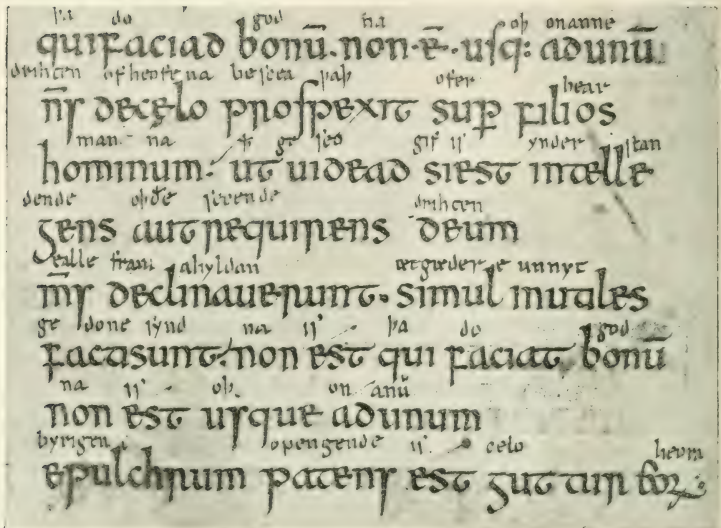 þa do god na oþ onanne
quifaciad bonū. non·ē·usq: adunū
drihten ofheofena besceapaþ ofer bear
n̄s decęlo prospexit sup̄ filios
man na ꝥ ge seo gif is ynder stan
hominum· ut uidead siest intelle
dende oþðe secende drihten
gens aut requirens deum
ealle fram ahyldan ætgædere unnyt
m̄s declinauerunt· simul inutiles
ge done synd na is þa do god
factisunt· non est qui faciat bonū
na is oþ on anū
non est usque adunum
byrigen opengende is celo heora
epulchrum patens est guttur eorꝝ